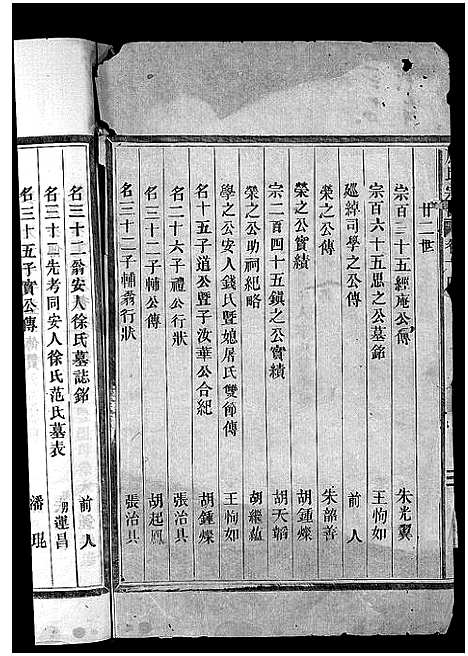 廿二世
宗百三十五經庵公傳 朱光翼
宗百六十五思之公墓銘 王恂如
廵綽司學之公傳 前人
榮之公傳 朱韶善
榮之公實績 胡鍾燦
宗二百四十五鎮之公實績 胡天
榮之公助祠紀略 胡繼
學之公安人錢氏暨媳屠氏雙節傳 王恂如
名十五子道公暨子汝華公合紀 胡鍾燦
名二十六子禮公行狀 張治具
名三十二子輔公傳 胡起鳳
名三十二子輔翁行狀 張治具
名三十二翁安人徐氏墓誌銘 前人
名三十二先考同安人徐氏范氏墓表 男運昌
名三十五子實公傳 潘琨